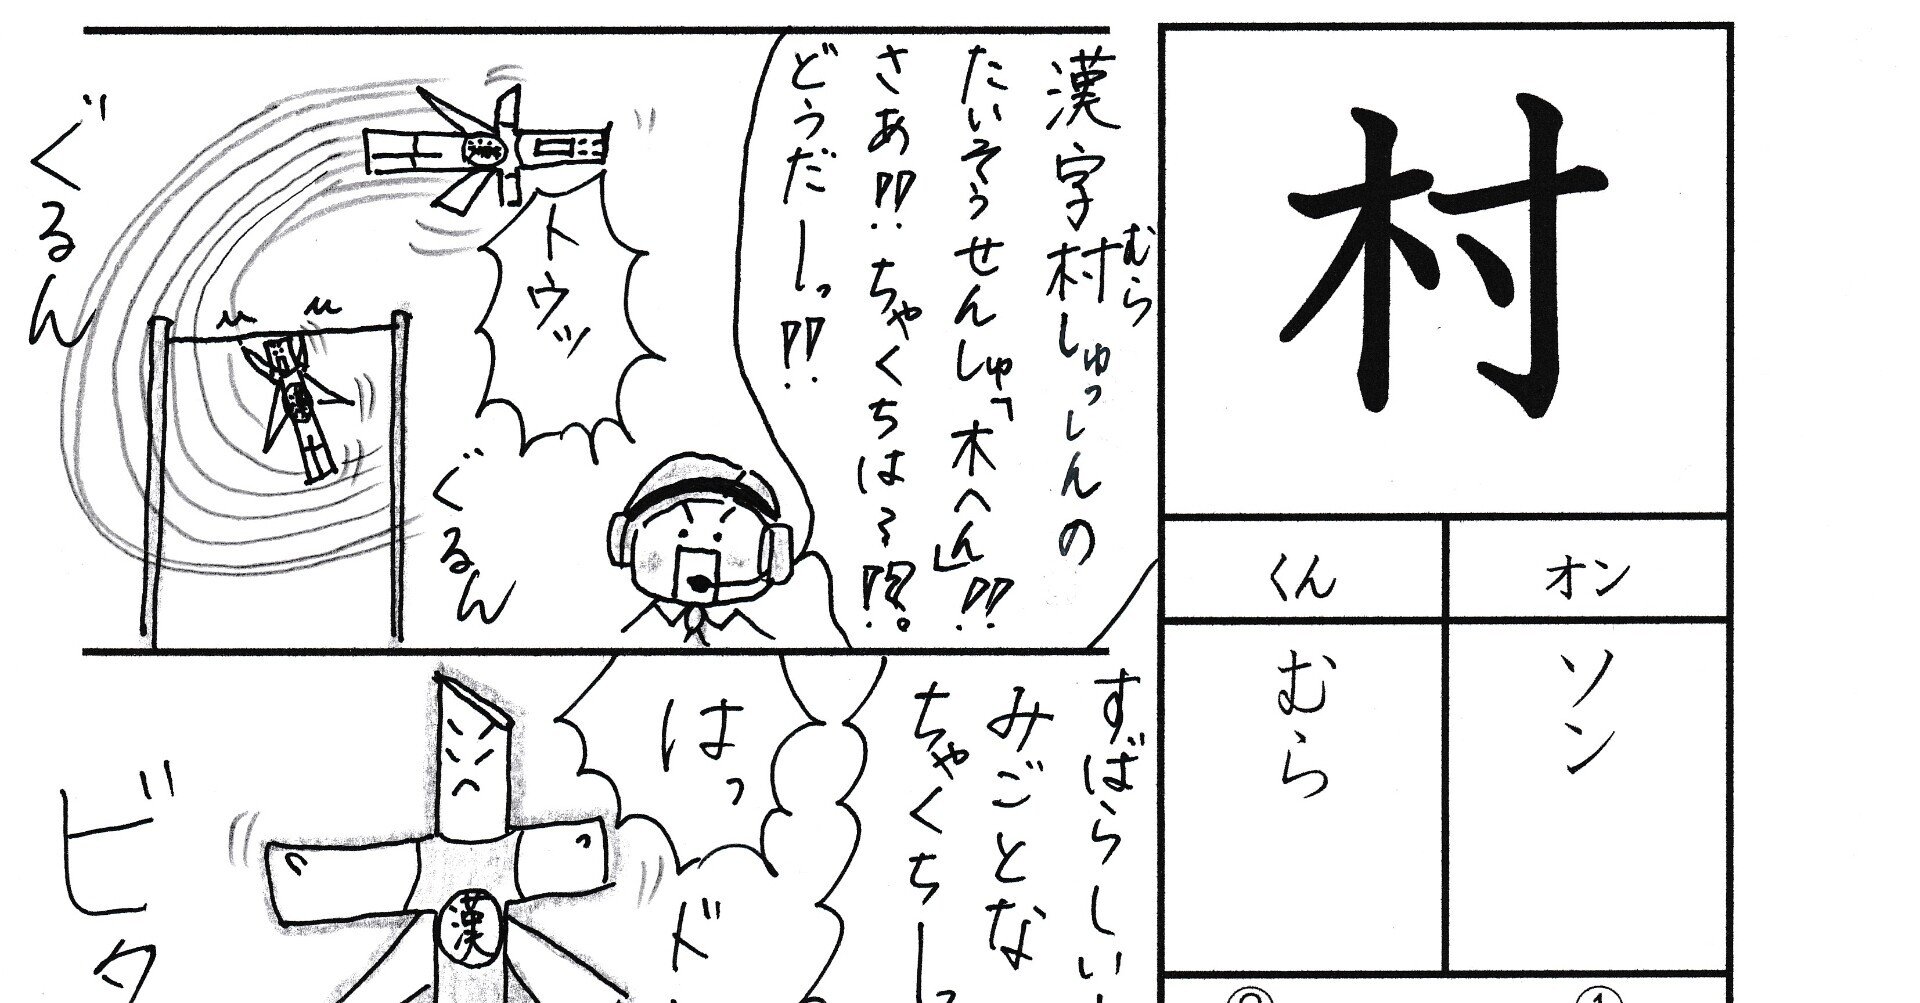 村
オン
くん
ソン
むら
①
漢字村しゅっしんの
むら
たいそうせんしゅ「木へん」!!
さあ!! ちゃくちは〜!?
どうだーっ!!
トウッ
ぐるん
ぐるん
漢
すばらしい
みごとな
ちゃくちー
はっ
ド
ビタ
漢